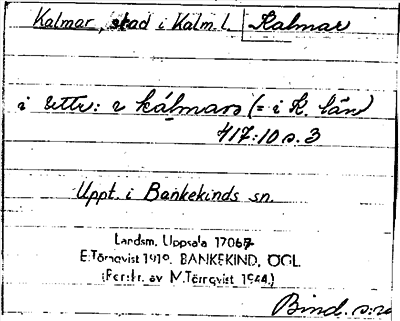 Kalmar, stad i Kalm. l. Kalmar
i uttr: i kálmars (= i K. län)
417:10 s. 3
Uppt. i Bankekinds sn.
Landsm. Uppsala 17067
E. Törnqvist 1919. BANKEKIND, ÖGL.
(Perstr. av M. Törnqvist 1944.)
Bind. s:n